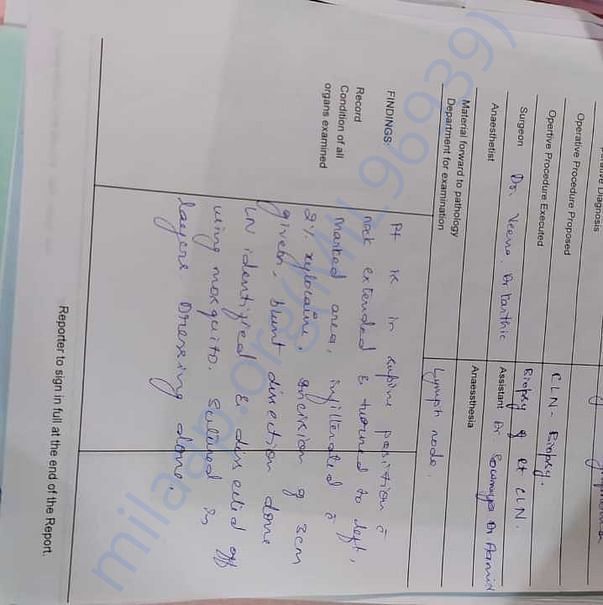 Diagnosis
Operative Procedure Proposed
CLN - Biopsy.
Opertive Procedure Executed
Biopsy of Rt CLN.
Surgeon Dr. Veena, Dr Karthic
Assistant Dr Sowmya Dr
Anaesthetist
Anaessthesia
Material forward to pathology
Department for examination
Lymph node.
FINDINGS:
Record
Condition of all
organs examined
Pt is in supine position c̄
neck extended & turned to left,
marked area, infilterated c̄
2% xylocaine. Incision of 3cm
given, blunt dissection done
LN identified & dissected off
using mosquito. Sutured in
layers Dressing done.
Reporter to sign in full at the end of the Report.
milaap.org(MIL96939)